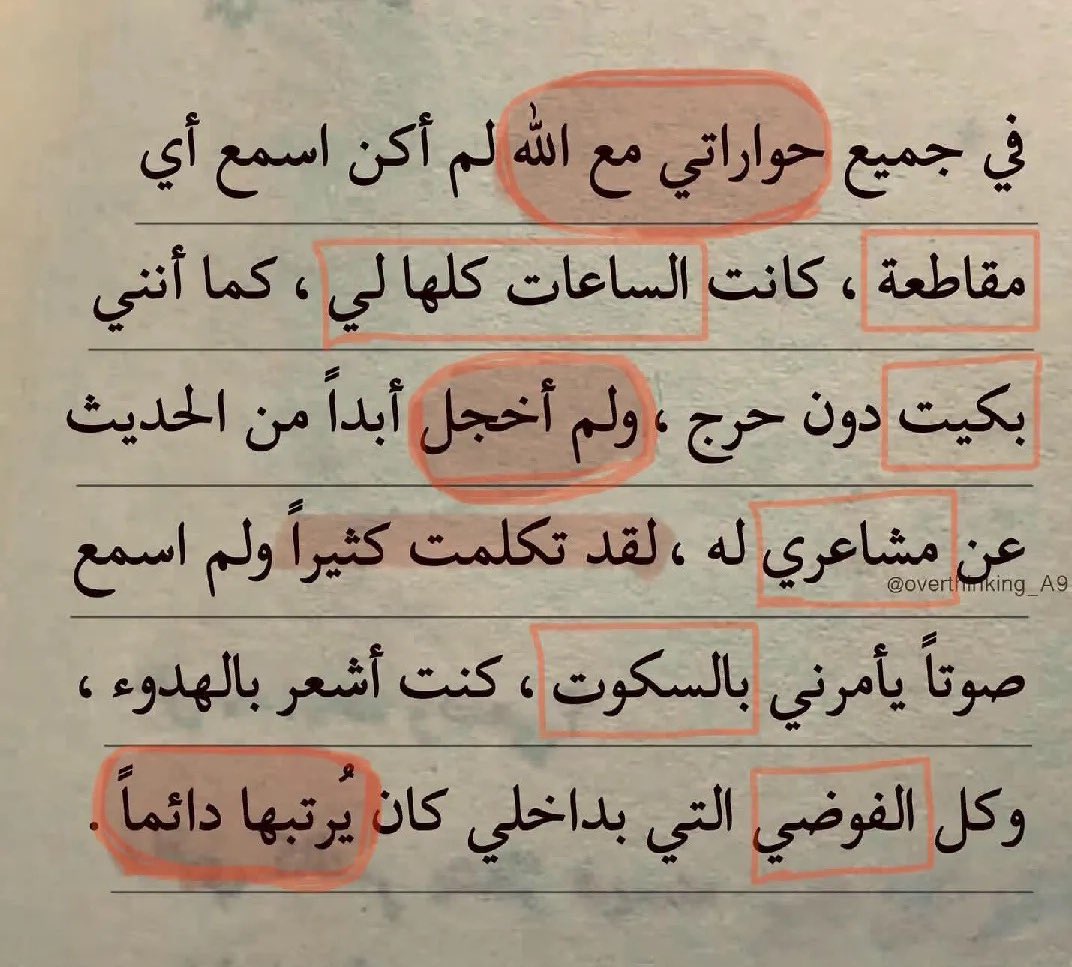 في جميع حواراتي مع الله لم أكن اسمع أي
مقاطعة ، كانت الساعات كلها لي ، كما أنني
بكيت دون حرج ، ولم أخجل أبداً من الحديث
عن مشاعري له ، لقد تكلمت كثيراً ولم اسمع
@overthinking_A9
صوتاً يأمرني بالسكوت ، كنت أشعر بالهدوء ،
وكل الفوضي التي بداخلي كان يُرتبها دائماً .